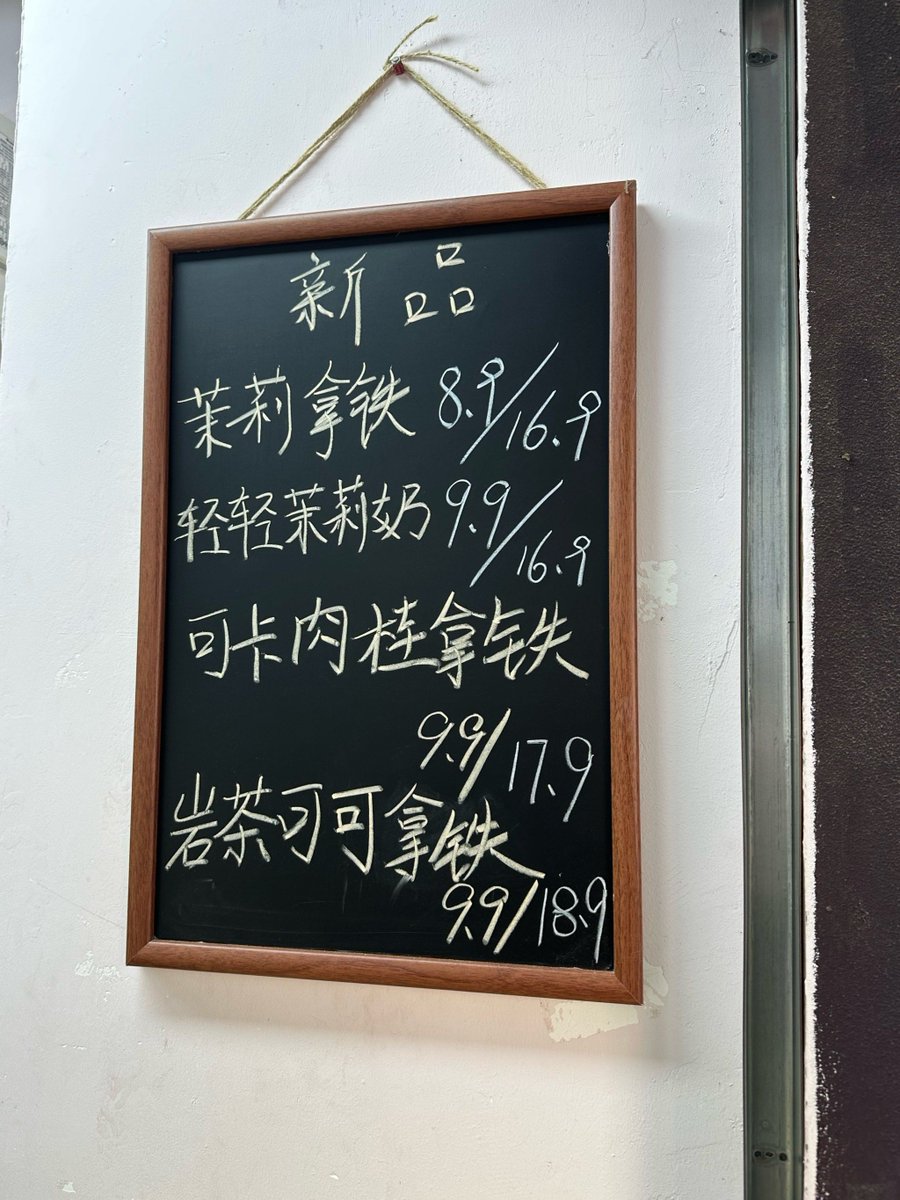 新品
茉莉拿铁 8.9/16.9
轻轻茉莉奶 9.9/16.9
可卡肉桂拿铁
9.9/17.9
岩茶可可拿铁
9.9/18.9